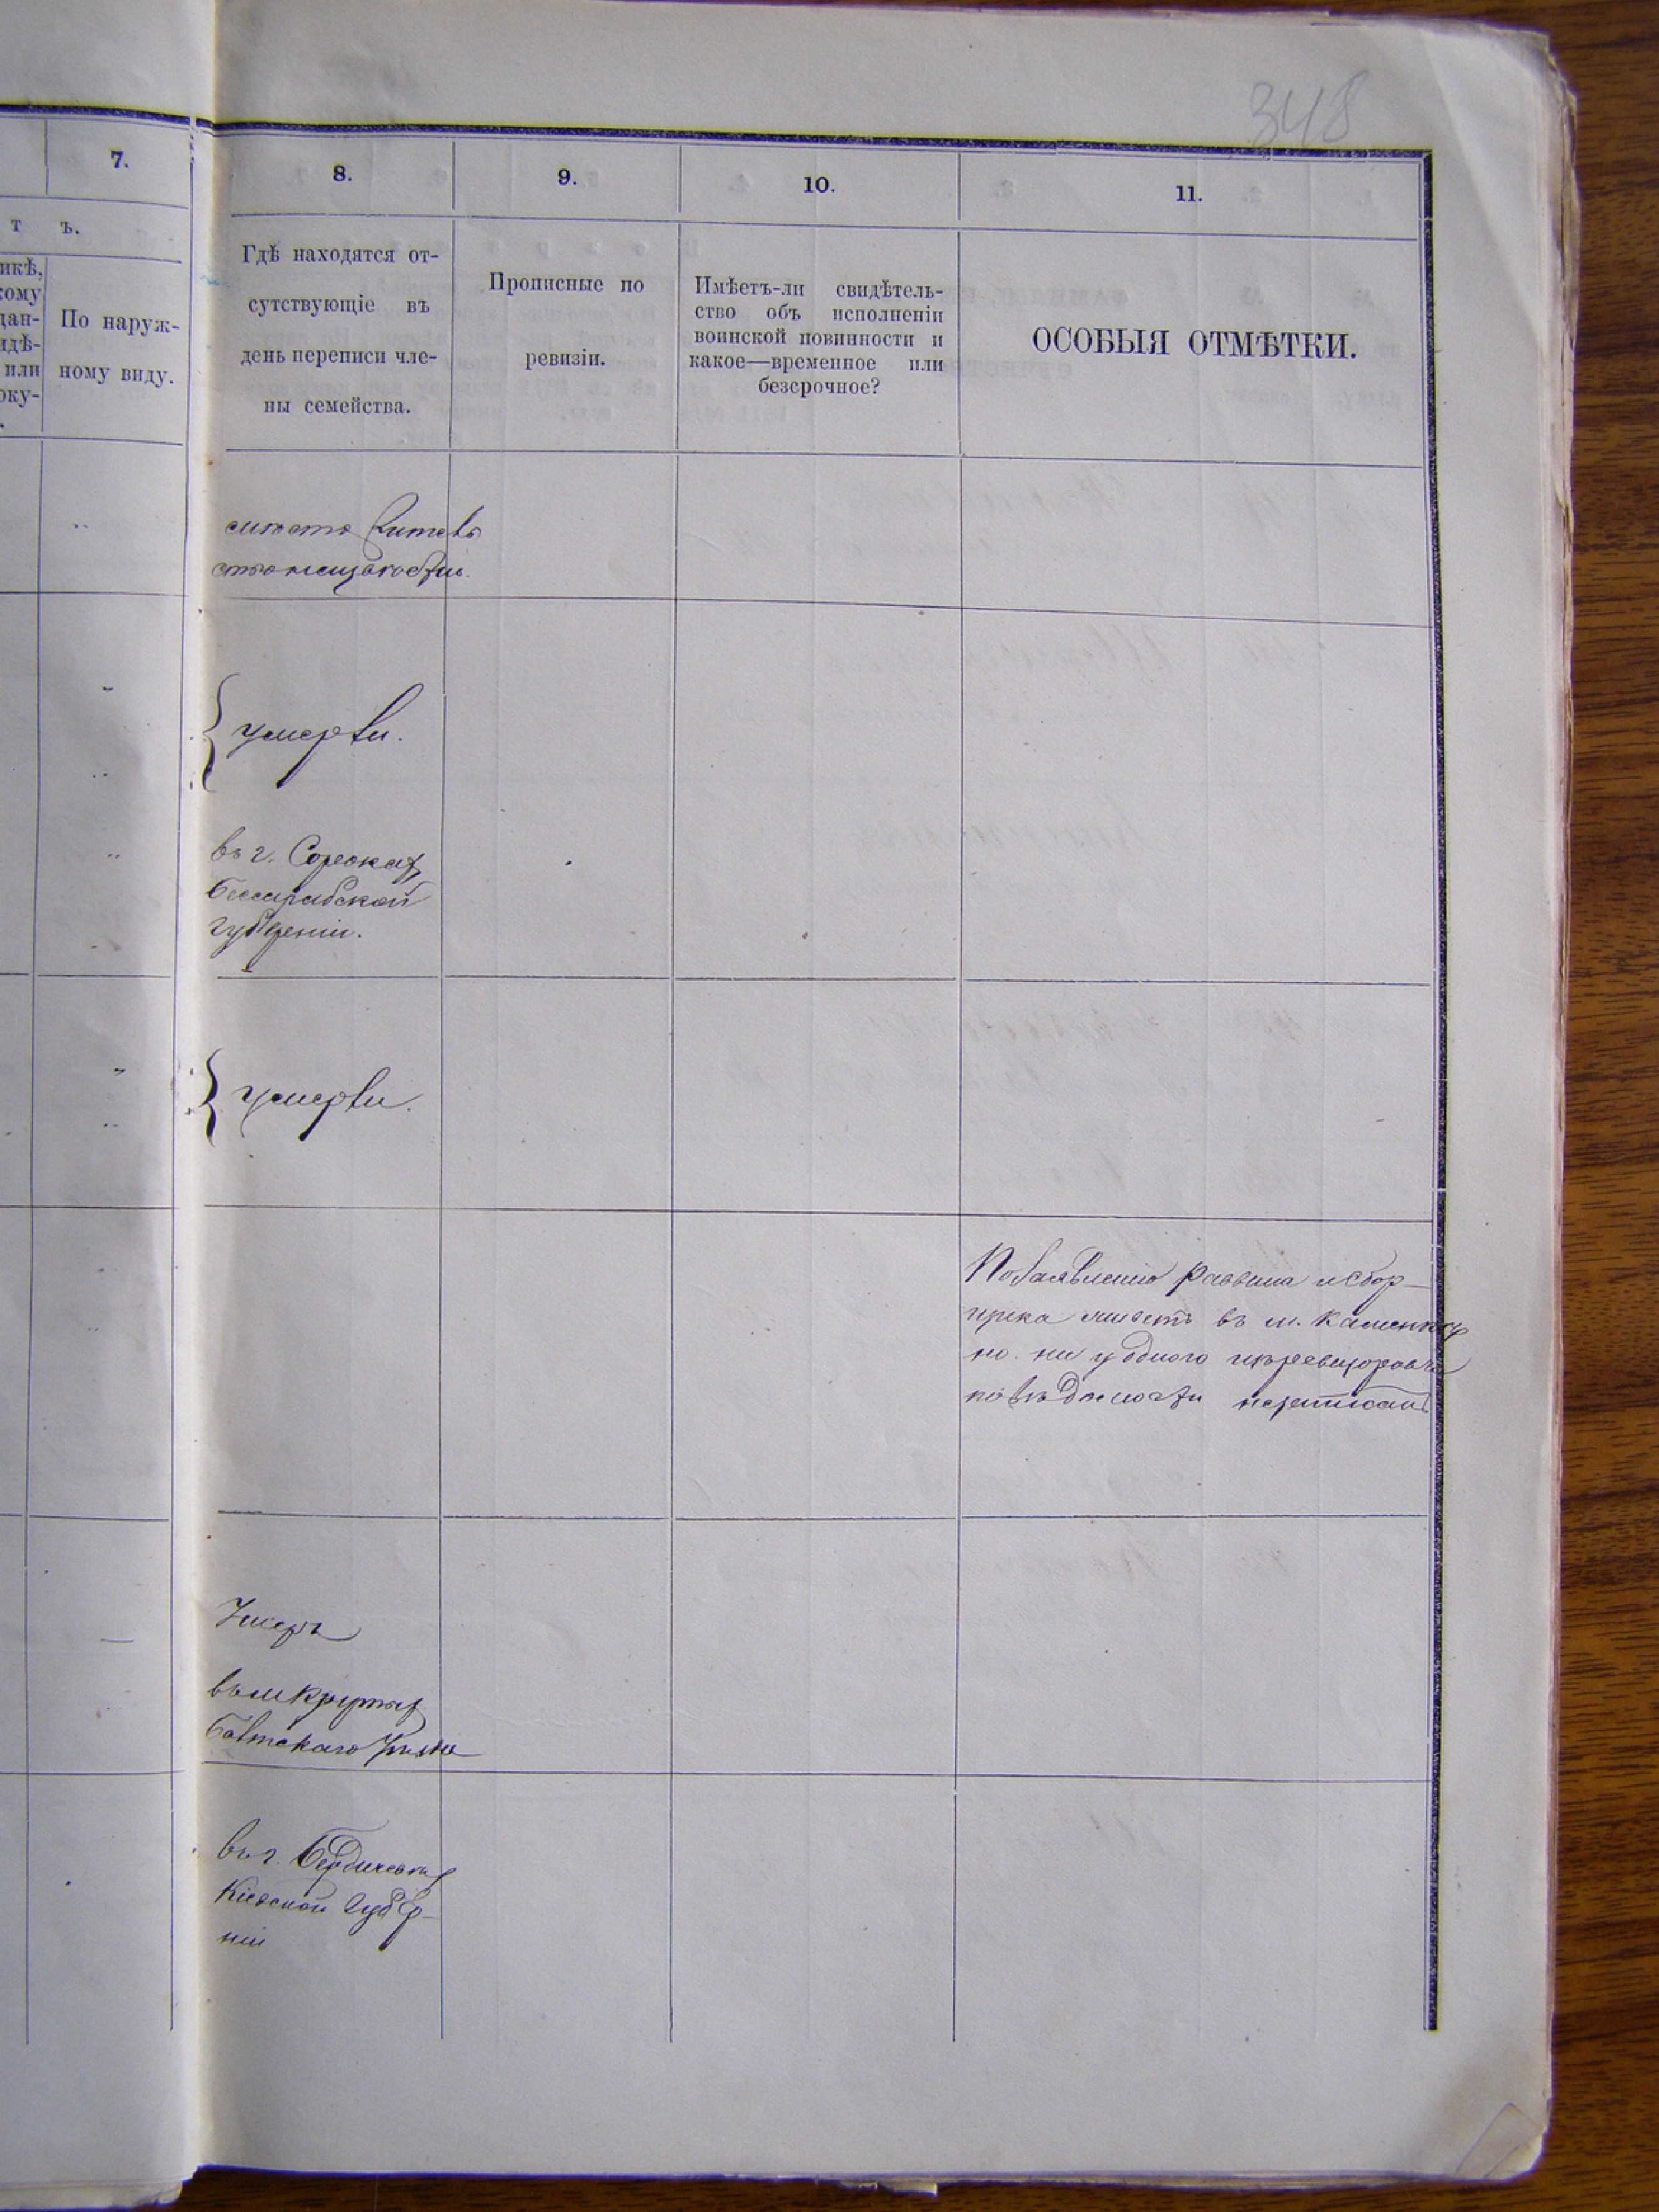 348
7.
8.
9.
10.
11.
т ъ.
икѣ,
кому
дан-
идѣ-
или
оку-
По наруж-
ному виду.
Гдѣ находятся от-
сутствующіе въ
день переписи чле-
ны семейства.
Прописные по
ревизіи.
Имѣетъ-ли свидѣтель-
ство объ исполненіи
воинской повинности и
какое—временное или
безсрочное?
ОСОБЫЯ ОТМѢТКИ.
мѣсто житель
умерли.
въ г. Сорокахъ
Бессарабской
губерніи.
умерли.
По заявленію раввина и сбор-
щика живетъ въ м. Каменкѣ
но ни у одного
не записанъ
Умеръ
въ м Крутыхъ
Балтскаго Уѣзда
въ г. Бердичевѣ
Кіевской Губер-
ніи